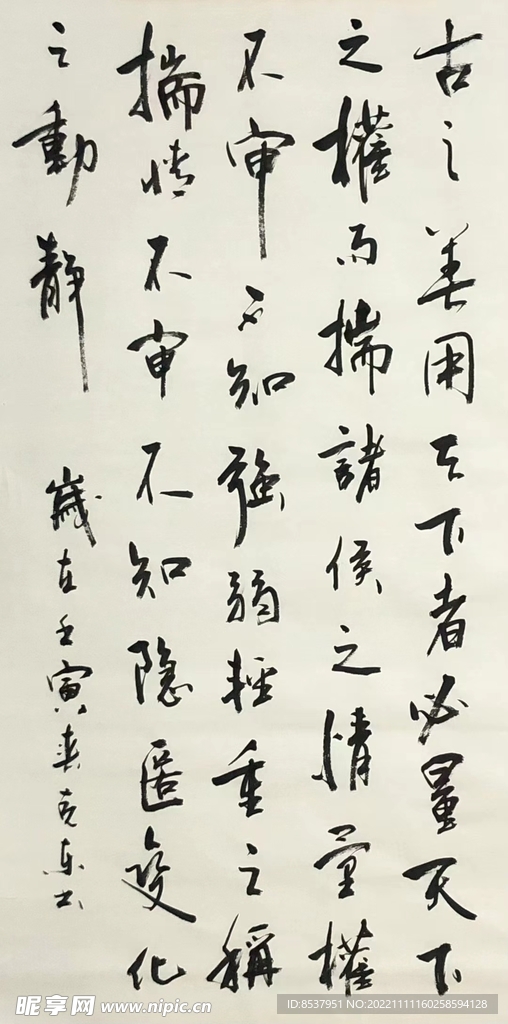 古之善用天下者必量天下
之權而揣諸侯之情量權
不审不知強弱輕重之稱
揣情不审不知隐匿變化
之動靜
歲在壬寅春克東书
昵享网 www.nipic.cn
ID:8537951 NO:20221111160258594128